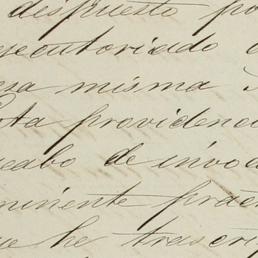 dispuesto po
esecutoriado
esa misma
ota providenc
acabo de invo
minente prac
ue he trascri